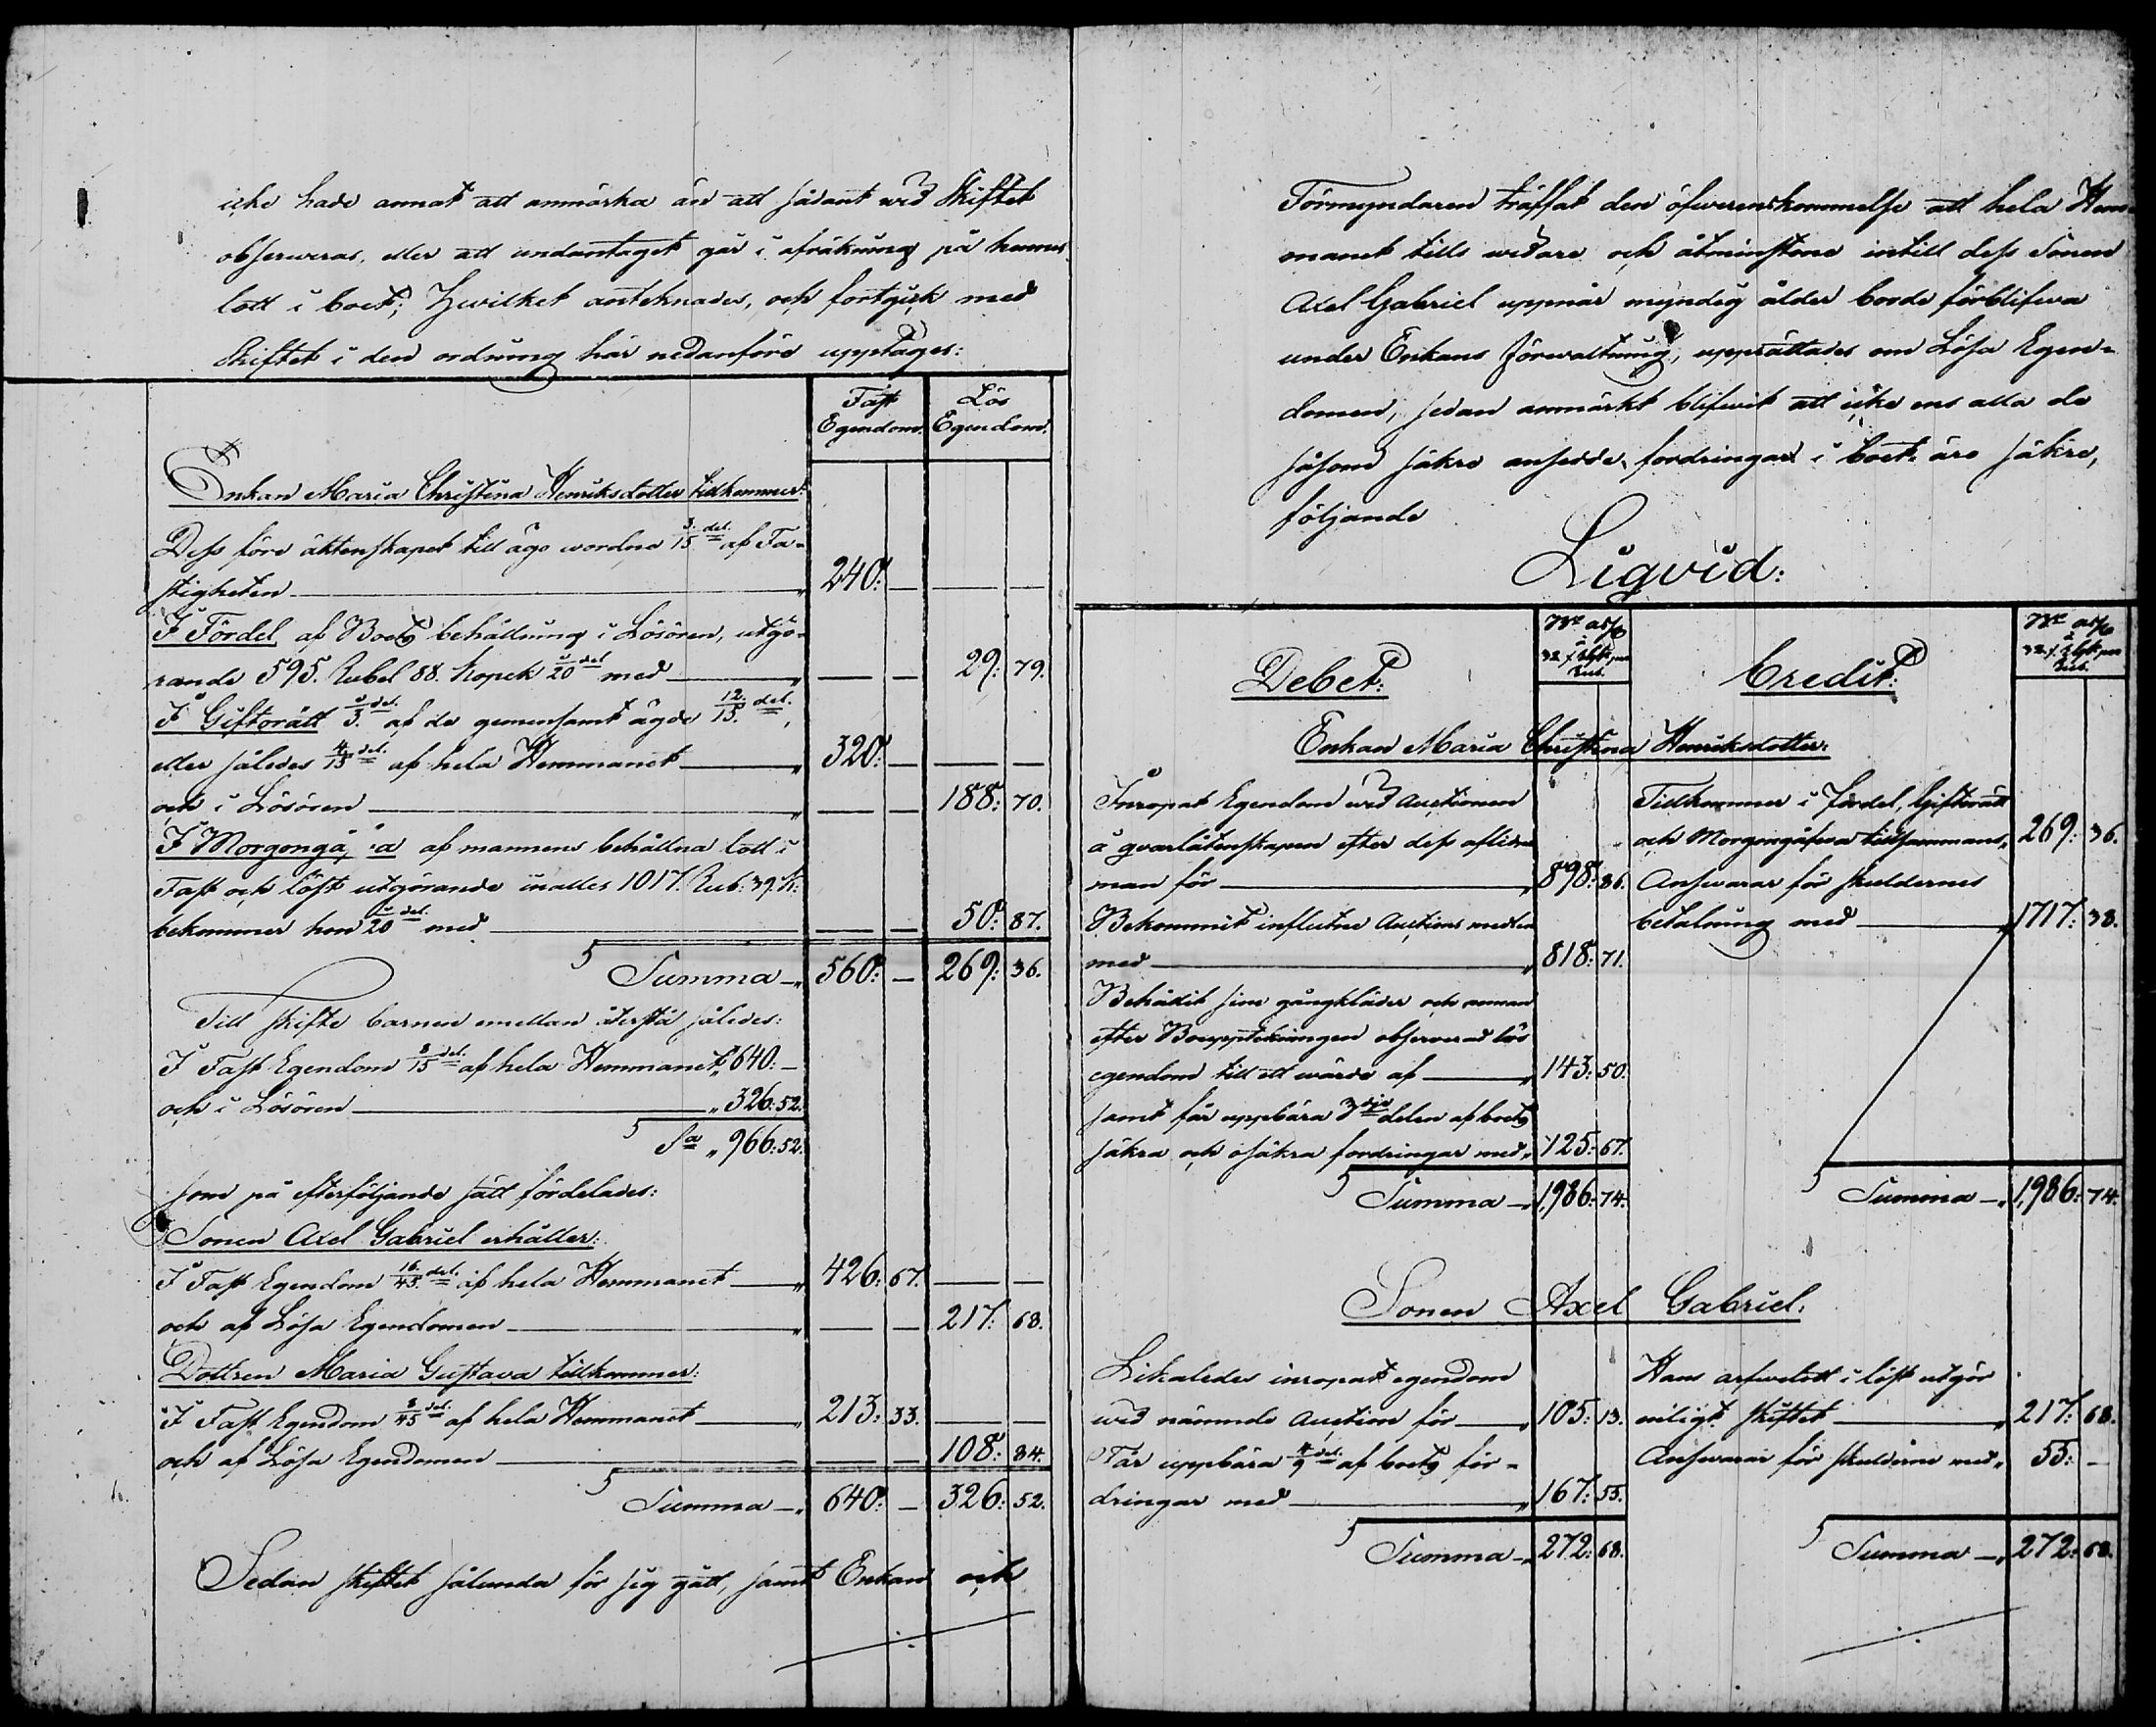 icke hade annat att anmärka än att sådant wid Skiftet
observeras, eller att undantaget går i afräkning på hennes
lott i boet; Hwilket antecknades, och fortgick med
Skiftet i den ordning här nedanföre upptages:
Fast Egendom. Lös Egendom.
Enkan Maria Christina Henriksdotter tillkommer:
Dess före äktenskapet till ägo wordne 3/15 del. af Fa-
stigheten " 240: — — —
I Fördel af Boets behållning i Lösören, utgö-
rande 595. Rubel 88. Kopek 1/20 del med " — — 29: 79.
I Giftorätt 1/3 del. af de gemensamt ägde 12/15 del.,
eller således 4/15 del. af hela Hemmanet " 320: — — —
och i Lösören " — — 188: 70.
I Morgongåfva af mannens behållna lott i
Fast och löst utgörande inalles 1017. Rub: 39. K:
bekommer hon 1/20 del. med — — 50: 87.
Summa — " 560: — 269: 36.
Till skifte barnen emellan återstå således:
I Fast Egendom 8/15 del. af hela Hemmanet " 640: —
och i Lösören " 326: 52.
Sa " 966: 52.
som på efterföljande sätt fördelades:
Sonen Axel Gabriel erhåller:
I Fast Egendom 16/45 del. af hela Hemmanet " 426: 67. — —
och af Lösa Egendomen " — — 217: 68.
Dottren Maria Gustava tillkommer:
I Fast Egendom 8/45 del. af hela Hemmanet " 213: 33. — —
och af Lösa Egendomen — — 108: 84.
Summa — " 640: — 326: 52.
Sedan skiftet sålunda för sig gått, samt Enkan och
Förmyndaren träffat den öfwerenskommelse att hela Hem-
manet tills widare och åtminstone intill dess Sonen
Axel Gabriel uppnår myndig ålder borde förblifwa
under Enkans förwaltning, upprättades om Lösa Egen-
domen, sedan anmärkt blifwit att icke ens alla de
såsom säkre ansedde fordringar i boet äro säkre,
följande
Liqvid:
Debet: Credit:
Enkan Maria Christina Henriksdotter:
Inropat Egendom wid Auctionen
å qvarlåtenskapen efter dess aflidne
man för " 898: 86.
Bekommit influtne Auctions medlen
med " 818: 71.
Behållit sine gångkläder och annan
efter Bouppteckningen observerad lös
egendom till ett wärde af " 143: 50.
samt får uppbära 3dje delen af boets
säkra och osäkra fordringar med " 125: 67.
Summa — " 1,986: 74.
Tillkommer i Fördel, Giftorätt
och Morgongåfwa tillsammans " 269: 36.
Answarar för skuldernes
betalning med " 1717: 38.
Summa — " 1,986: 74.
Sonen Axel Gabriel.
Likaledes inropat egendom
wid nämnde Auction för " 105: 13.
Får uppbära 4/9 del. af boets for-
dringar med " 167: 55.
Summa — " 272: 68.
Hans arfwelott i löst utgör
enligt skiftet " 217: 68.
Answarar för skulderne med " 55: —
Summa — " 272: 68.